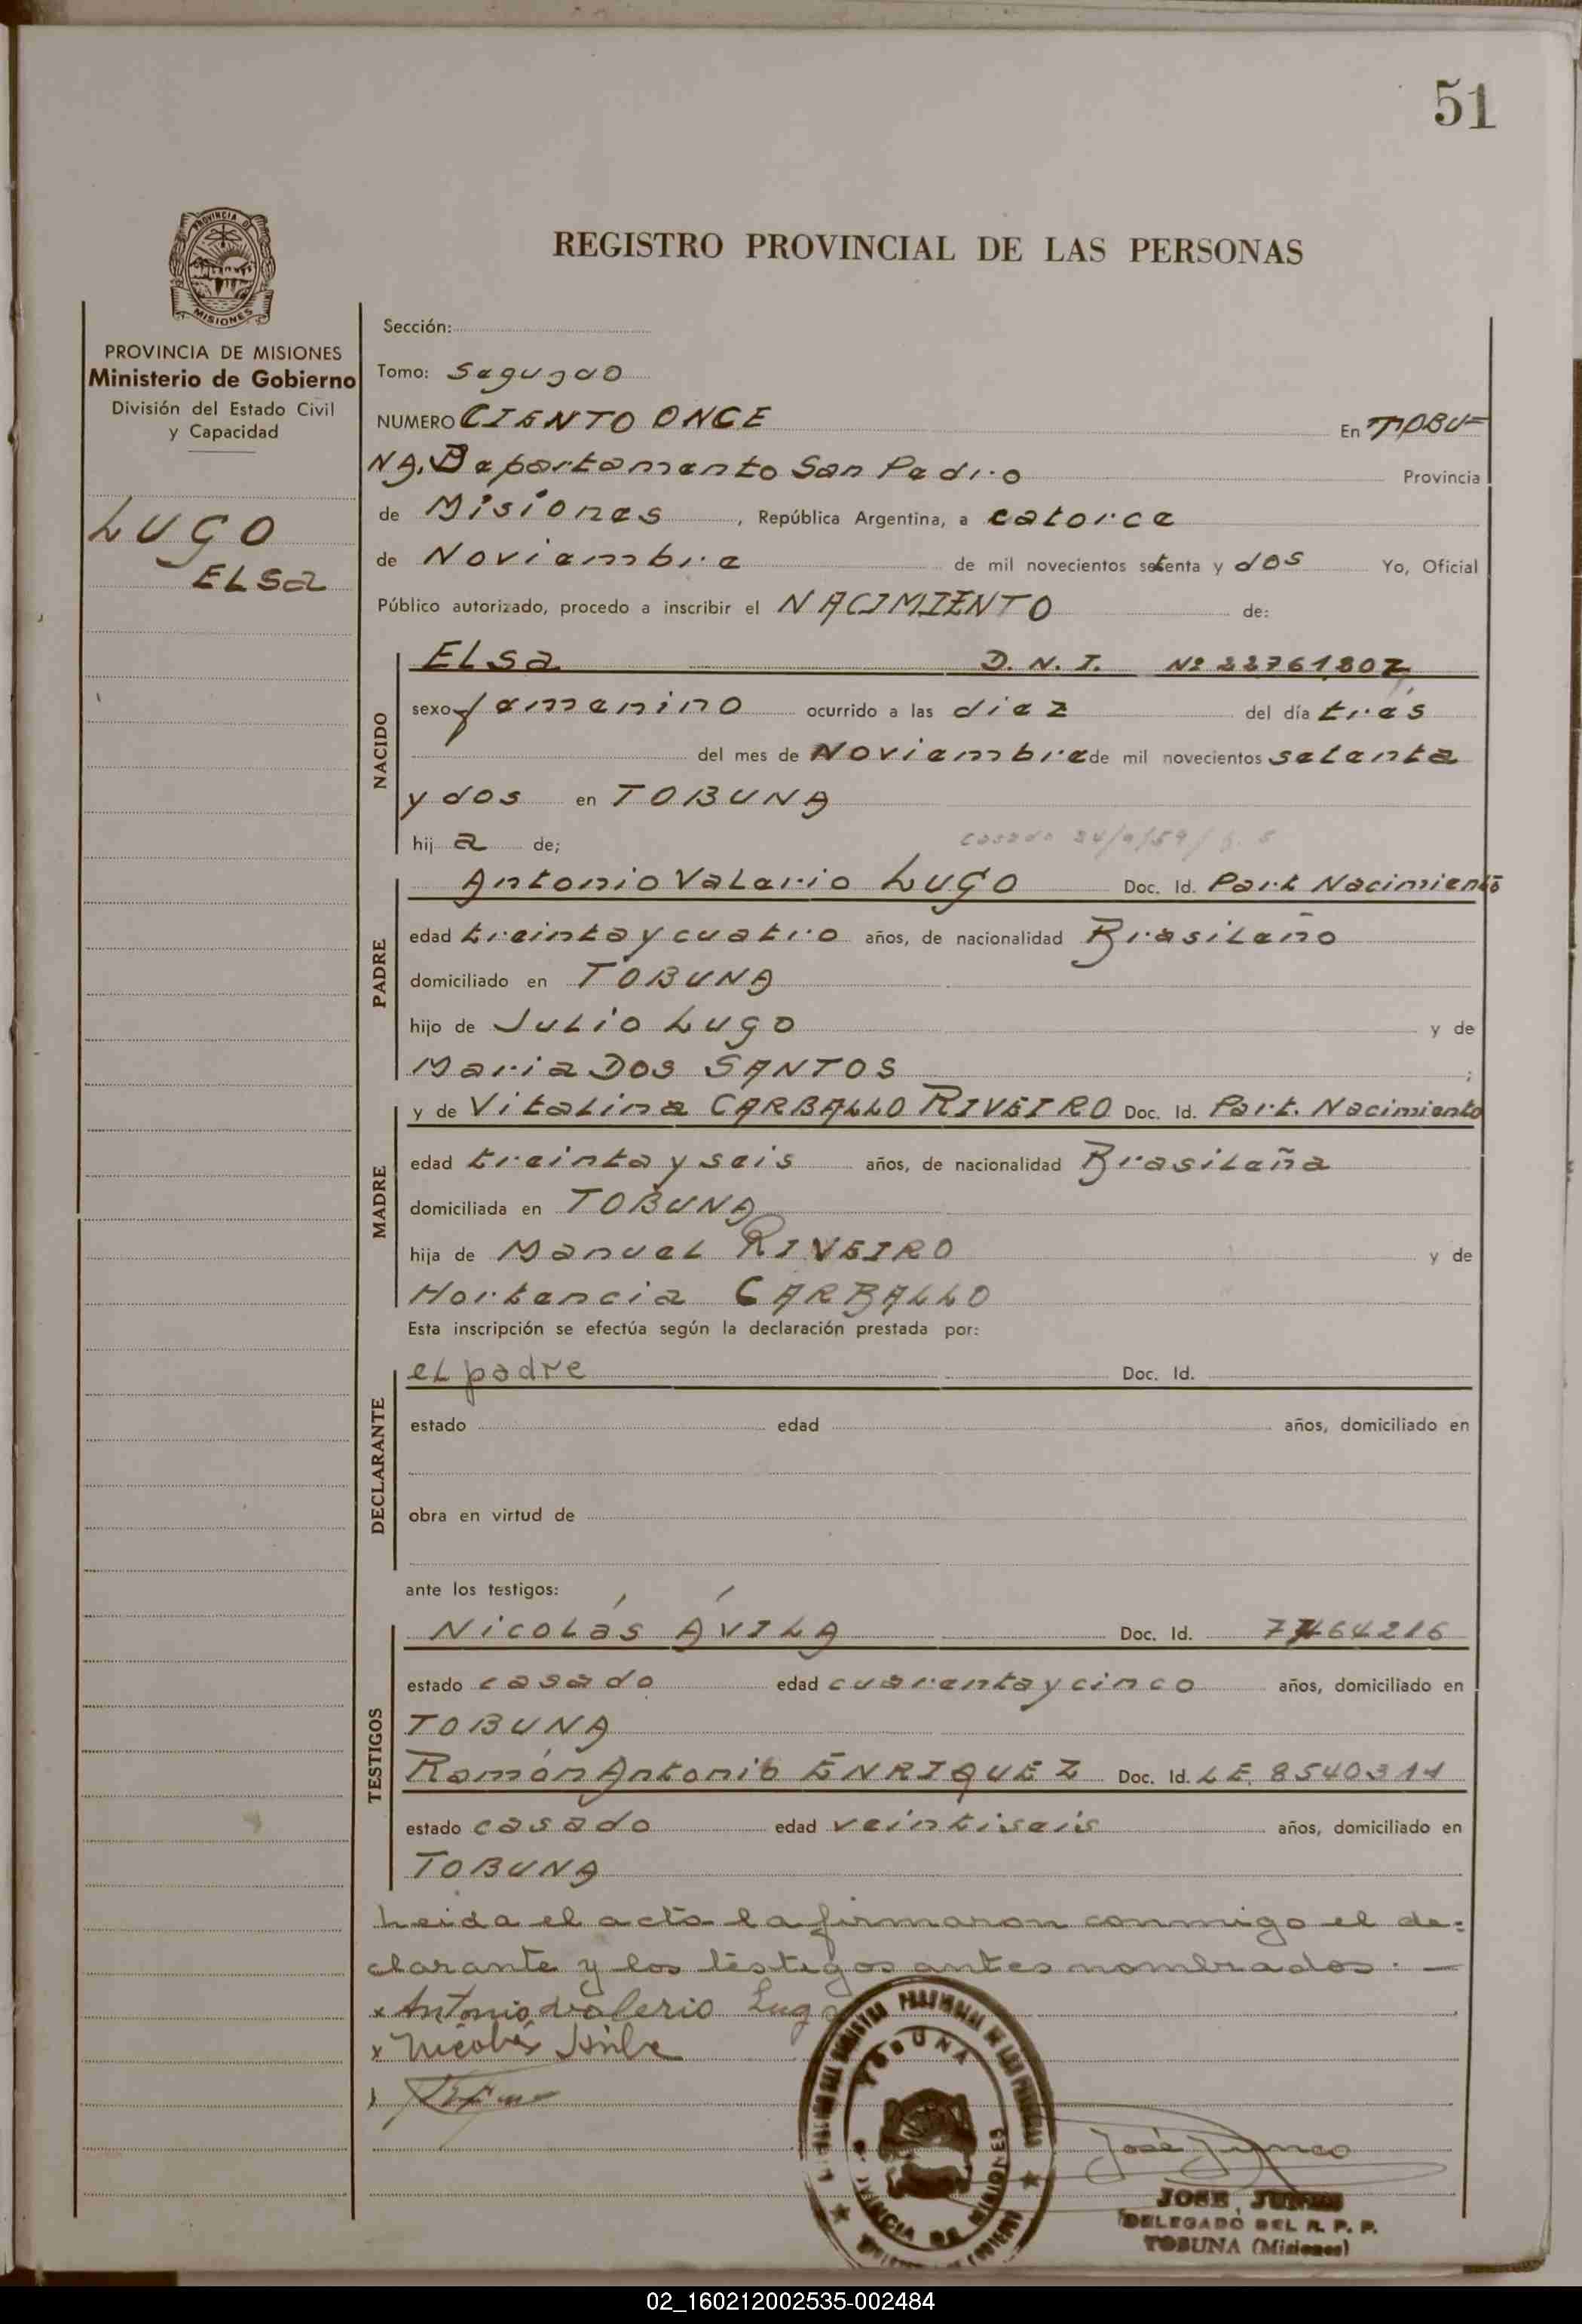 51
PROVINCIA DE
MISIONES
PROVINCIA DE MISIONES
Ministerio de Gobierno
División del Estado Civil
y Capacidad
LUGO
ELSa
REGISTRO PROVINCIAL DE LAS PERSONAS
Sección:
Tomo: Segundo
NUMERO CIENTO ONCE En TOBU=
NA. Departamento San Pedro Provincia
de Misiones, República Argentina, a catorce
de Noviembre de mil novecientos setenta y dos Yo, Oficial
Público autorizado, procedo a inscribir el NACIMIENTO de:
NACIDO
ELSa D. N. I. Nº 22761807
sexo femenino ocurrido a las diez del día tres
del mes de Noviembre de mil novecientos setenta
y dos en TOBUNA
hija de;
casado 24/9/59
PADRE
Antonio Valerio LUGO Doc. Id. Part Nacimiento
edad treinta y cuatro años, de nacionalidad Brasileño
domiciliado en TOBUNA
hijo de Julio Lugo y de
Maria DOS SANTOS ;
MADRE
y de Vitalina CARBALLO RIVEIRO Doc. Id. Part. Nacimiento
edad treinta y seis años, de nacionalidad Brasileña
domiciliada en TOBUNA
hija de Manuel RIVEIRO y de
Hortencia CARBALLO
Esta inscripción se efectúa según la declaración prestada por:
DECLARANTE
el padre Doc. Id.
estado edad años, domiciliado en
obra en virtud de
ante los testigos:
TESTIGOS
Nicolás ÁVILA Doc. Id. 7464216
estado casado edad cuarenta y cinco años, domiciliado en
TOBUNA
Ramón Antonio ENRIQUEZ Doc. Id. LE 8540311
estado casado edad veintiseis años, domiciliado en
TOBUNA
Leida el acta la firmaron conmigo el de=
clarante y los testigos antes nombrados. —
x Antonio Valerio Lugo
x Nicolás Avila
TOBUNA
PROVINCIA DE MISIONES
José Junco
JOSE JUNCO
DELEGADO DEL R. P. P.
TOBUNA (Misiones)
02_160212002535-002484